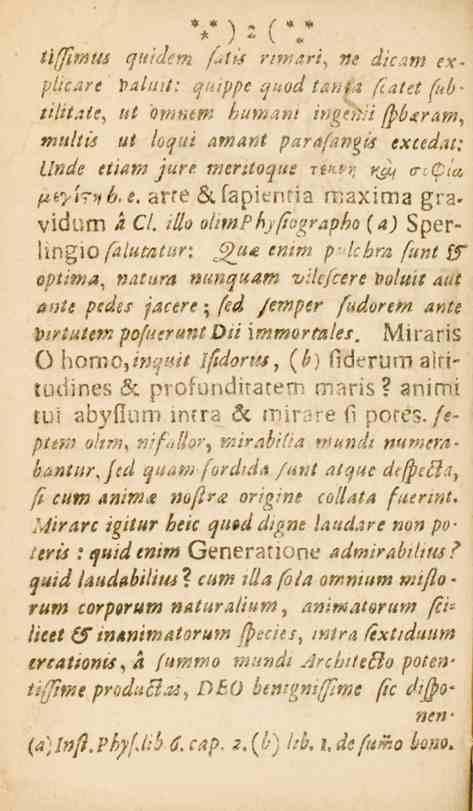 *⁎* ) 2 ( *⁎*
tiſſimus quidem ſatis rimari, ne dicam ex-
plicare valuit: quippe quod tanta ſcatet ſub-
tilitate, ut omnem humani ingenii ſphæram,
multis ut loqui amant paraſangis excedat:
Unde etiam jure meritoque τέχνη καὶ σοφία
μεγίστη h. e. arte & ſapientia maxima gra-
vidum â Cl. illo olim Phyſiographo (a) Sper-
lingio ſalutatur: Quæ enim pulchra ſunt &
optima, natura nunquam vileſcere voluit aut
ante pedes jacere; ſed ſemper ſudorem ante
virtutem poſuerunt Dii immortales. Miraris
O homo, inquit Iſidorus, (b) ſiderum alti-
tudines & profunditatem maris? animi
tui abyſſum intra & mirare ſi potes. ſe-
ptem olim, nifallor, mirabilia mundi numera-
bantur, ſed quam ſordida ſunt atque deſpecta,
ſi cum animæ noſtræ origine collata fuerint.
Mirare igitur heic quod digne laudare non po-
teris: quid enim Generatione admirabilius?
quid laudabilius? cum illa ſola omnium miſto-
rum corporum naturalium, animatorum ſci-
licet & inanimatorum ſpecies, intra ſextiduum
creationis, â ſummo mundi Architecto poten-
tiſſime productas, DEO benigniſſime ſic diſpo-
nen-
(a) Inſt. Phyſ. lib 6. cap. 2. (b) lib. 1. de ſum̃o bono.